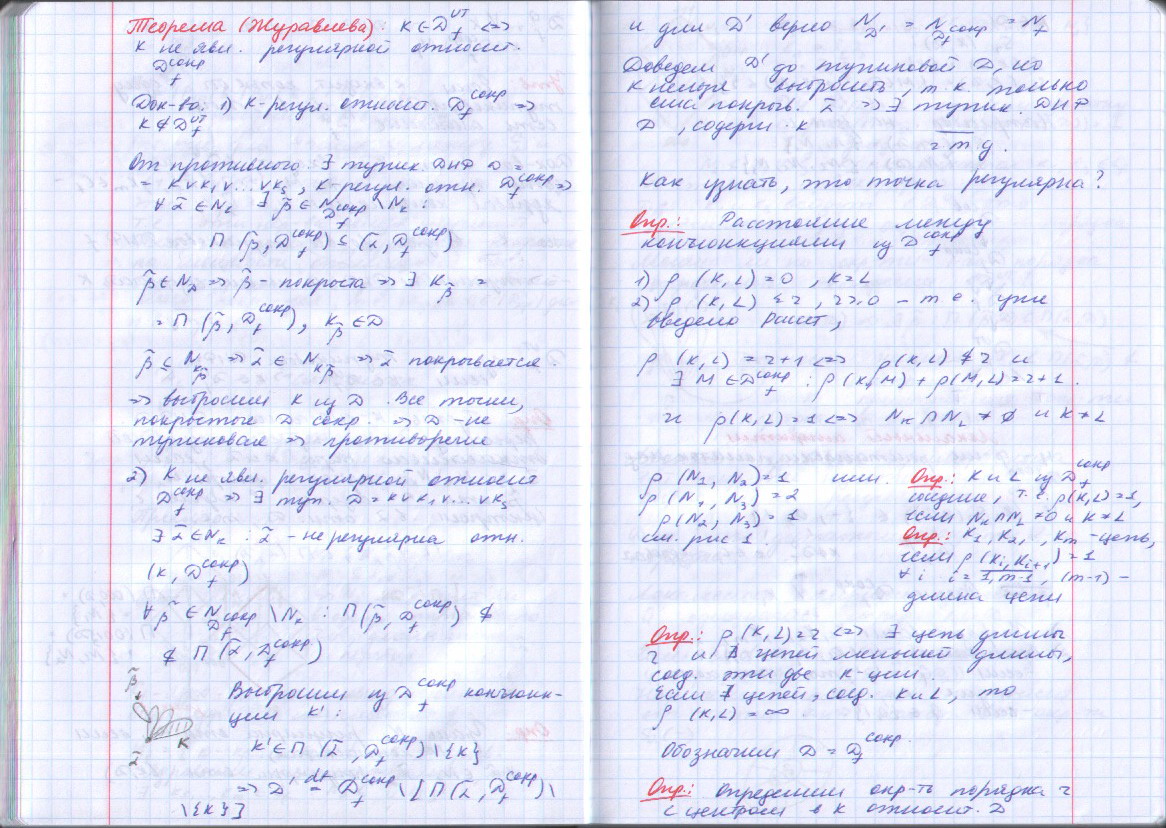 Теорема (Журавлева): K ∈ D_f^{UT} <=>
K не явл. регулярной относит.
D_f^{сокр}
Док-во: 1) K-регул. относит. D_f^{сокр} =>
K ∉ D_f^{UT}
От противного. ∃ тупик. ДНФ D =
= K ∨ K₁ ∨ ... ∨ K_s, K-регул. отн. D_f^{сокр} =>
∀ α̃ ∈ N_K ∃ β̃ ∈ N_{D_f^{сокр}} \ N_K :
П (β̃, D_f^{сокр}) ⊆ (α̃, D_f^{сокр})
β̃ ∈ N_D => β̃ - покрыта => ∃ K_β̃ =
= П (β̃, D_f^{сокр}), K_β̃ ∈ D
β̃ ⊆ N_{K_β̃} => α̃ ∈ N_{K_β̃} => α̃ покрывается
=> выбросим K из D. Все точки,
покрытые D сокр. => D - не
тупиковая => противоречие
2) K не явл. регулярной относит
D_f^{сокр} => ∃ туп. D = K ∨ K₁ ∨ ... ∨ K_s
∃ α̃ ∈ N_K : α̃ - не регулярна отн.
(K, D_f^{сокр})
∀ β̃ ∈ N_{D_f^{сокр}} \ N_K : П(β̃, D_f^{сокр}) ⊄
⊄ П (α̃, D_f^{сокр})
β̃
Выбросим из D_f^{сокр} конъюнк-
ции K' :
K
α̃
K' ∈ П (α̃, D_f^{сокр}) \ {K}
=> D' =^{df} D_f^{сокр} \ [П (α̃, D_f^{сокр}) \
\ {K}]
и для D' верно N_{D'} = N_{D_f^{сокр}} = N_f
Доведем D' до тупиковой D, но
K нельзя выбросить, т.к. только
она покрыв. α̃ => ∃ тупик. ДНФ
D, содерж. K
= т.д.
Как узнать, что точка регулярна?
Опр.: Расстояние между
конъюнкциями из D_f^{сокр}
1) ρ (K, L) = 0, K = L
2) ρ (K, L) ≤ r, r ≥ 0 - т.е. уже
введено расст,
ρ (K, L) = r+1 <=> ρ(K, L) ≰ r и
∃ M ∈ D_f^{сокр} : ρ (K, M) + ρ(M, L) = r+1.
и ρ(K, L) = 1 <=> N_K ∩ N_L ≠ ∅ и K ≠ L
ρ (N₁, N₂) = 1 или.
ρ (N₁, N₃) = 2
ρ (N₂, N₃) = 1
см. рис 1.
Опр.: K и L из D_f^{сокр}
соседние, т.е. ρ(K, L) = 1,
если N_K ∩ N_L ≠ 0 и K ≠ L
Опр.: K₁, K₂, , K_m - цепь,
если ρ (K_i, K_{i+1}) = 1
∀ i i = 1, m-1, (m-1) -
длина цепи
Опр.: ρ (K, L) = r <=> ∃ цепь длины
r и ∄ цепей меньшей длины,
соед. эти две к-ции.
Если ∄ цепей, соед. K и L, то
ρ (K, L) = ∞
Обозначим D = D_f^{сокр}.
Опр.: Определим окр-ть порядка r
с центром в K относит. D